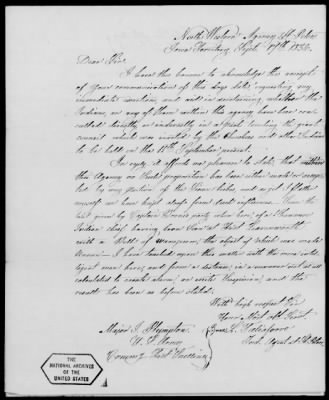 North Western Agency St. Peters
Iowa Territory Sept. 17th 18
Dear Sir.
I have the honour to acknowledge the receipt
of your communication of this days date, requesting my
immediate and aid in ascertaining whether the
Indians, or any of them within this agency have been con-
sulted directly, or indirectly in regard to the great
council which was invited by the Cherokees and other Indians
to be held on the 15th September
In reply it affords me pleasure to state, that within
this Agency no such proposition has been either made or accep-
ted by any portion of the Sioux tribes, and as yet I flatter
myself we have kept aloof from such influence. From the
hint given by Captain party when here of a Shawnee
Indian chief having been seen at Fort Leavenworth
with a Belt of Wampum, the object of which was made
known I have touched upon this matter with the most intel-
ligent men, being and from a distance, in a manner not at all
calculated to create alarm, or excite suspicion; and the
result has been as before stated.
With high respect Sir
Your Most obt Servt
Law. Taliaferro
Ind. Agent at St. Peters
Major J. Plympton
U. S. Army
Comdg Fort Snelling
THE
NATIONAL ARCHIVES
OF THE
UNITED STATES